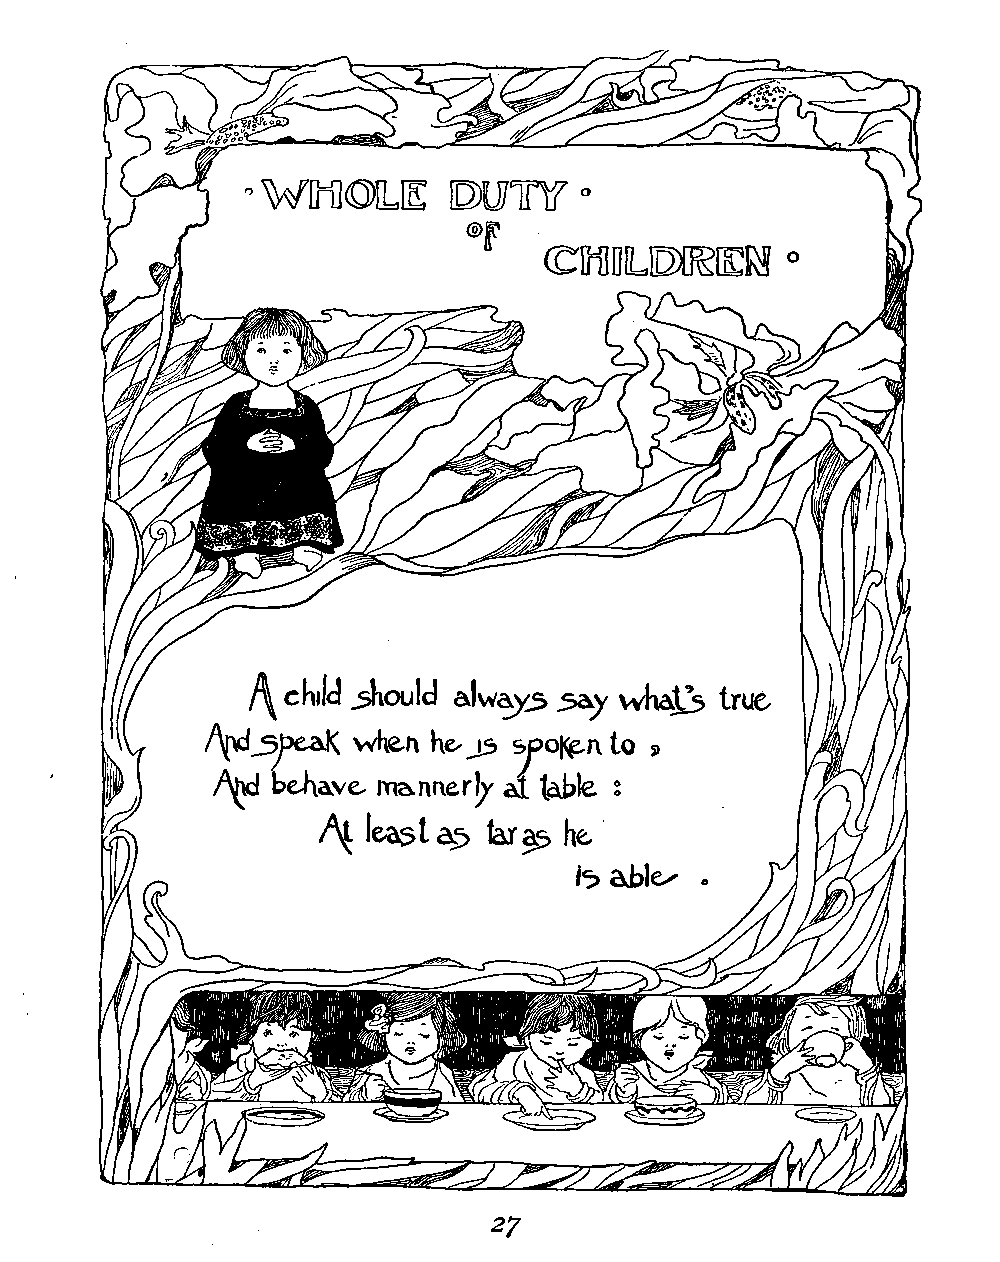 · WHOLE DUTY ·
OF
CHILDREN ·
A child should always say what's true
And speak when he is spoken to ,
And behave mannerly at table :
At least as far as he
is able .
27